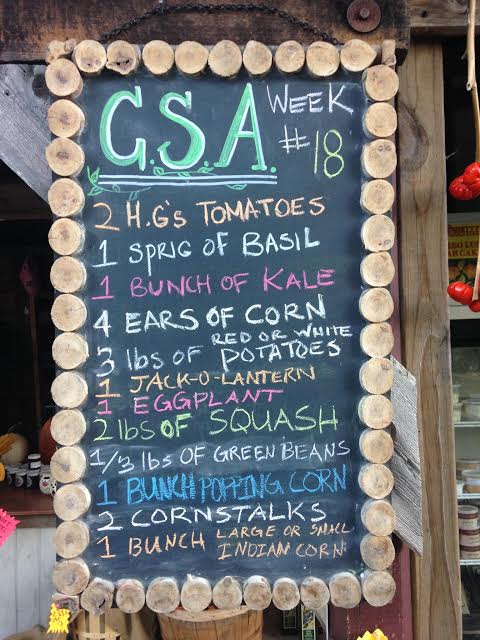 C.S.A. WEEK
#18
2 H.G's TOMATOES
1 SPRIG OF BASIL
1 BUNCH OF KALE
4 EARS OF CORN
3 lbs OF RED OR WHITE POTATOES
1 JACK-O-LANTERN
1 EGGPLANT
2 lbs OF SQUASH
1/3 lbs OF GREEN BEANS
1 BUNCH POPPING CORN
2 CORNSTALKS
1 BUNCH LARGE OR SMALL
INDIAN CORN